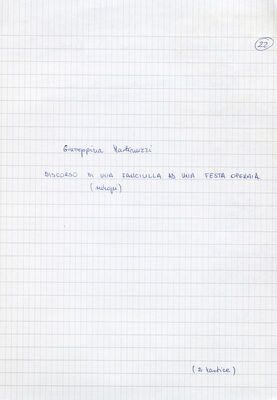 22
Giuseppina Martinuzzi
DISCORSO DI UNA FANCIULLA AD UNA FESTA OPERAIA
(2 kartice)